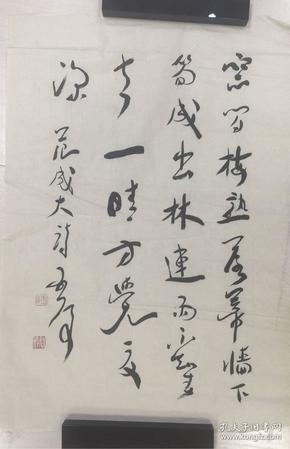 窗间梅熟落蒂墙下
笋成出林连雨不知春
去一晴方觉夏
深 范成大诗
孔夫子旧书网
www.kongfz.com